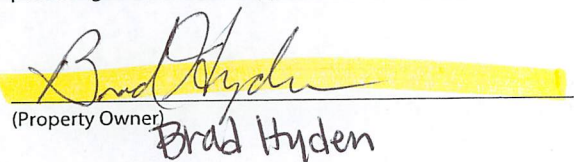 Brad Hyden
(Property Owner)
Brad Hyden